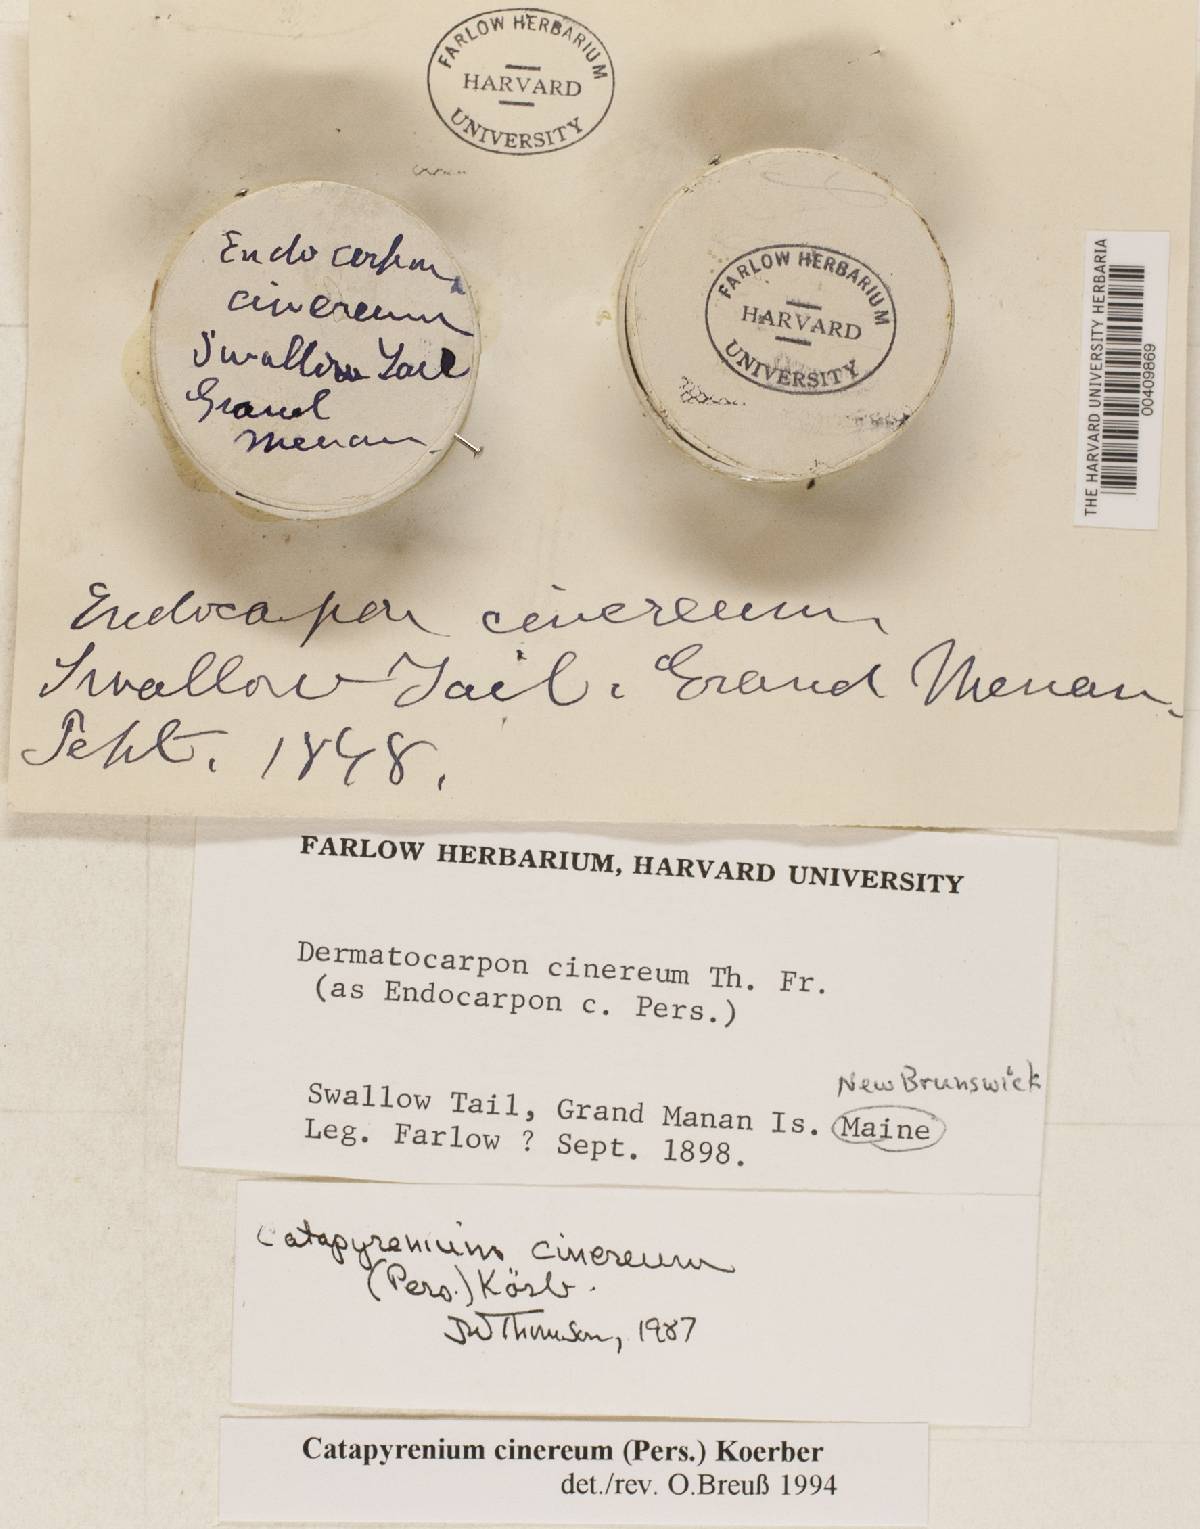 FARLOW HERBARIUM
HARVARD
UNIVERSITY
Endocarpon
cinereum
Swallow Tail
Grand
Menan
FARLOW HERBARIUM
HARVARD
UNIVERSITY
THE HARVARD UNIVERSITY HERBARIA
00409869
Endocapon cinereum
Swallow Tail. Grand Menan.
Sept. 1898.
FARLOW HERBARIUM, HARVARD UNIVERSITY
Dermatocarpon cinereum Th. Fr.
(as Endocarpon c. Pers.)
New Brunswick
Swallow Tail, Grand Manan Is. Maine
Leg. Farlow ? Sept. 1898.
Catapyrenium cinereum
(Pers.) Körb.
JW Thomson, 1987
Catapyrenium cinereum (Pers.) Koerber
det./rev. O.Breuß 1994